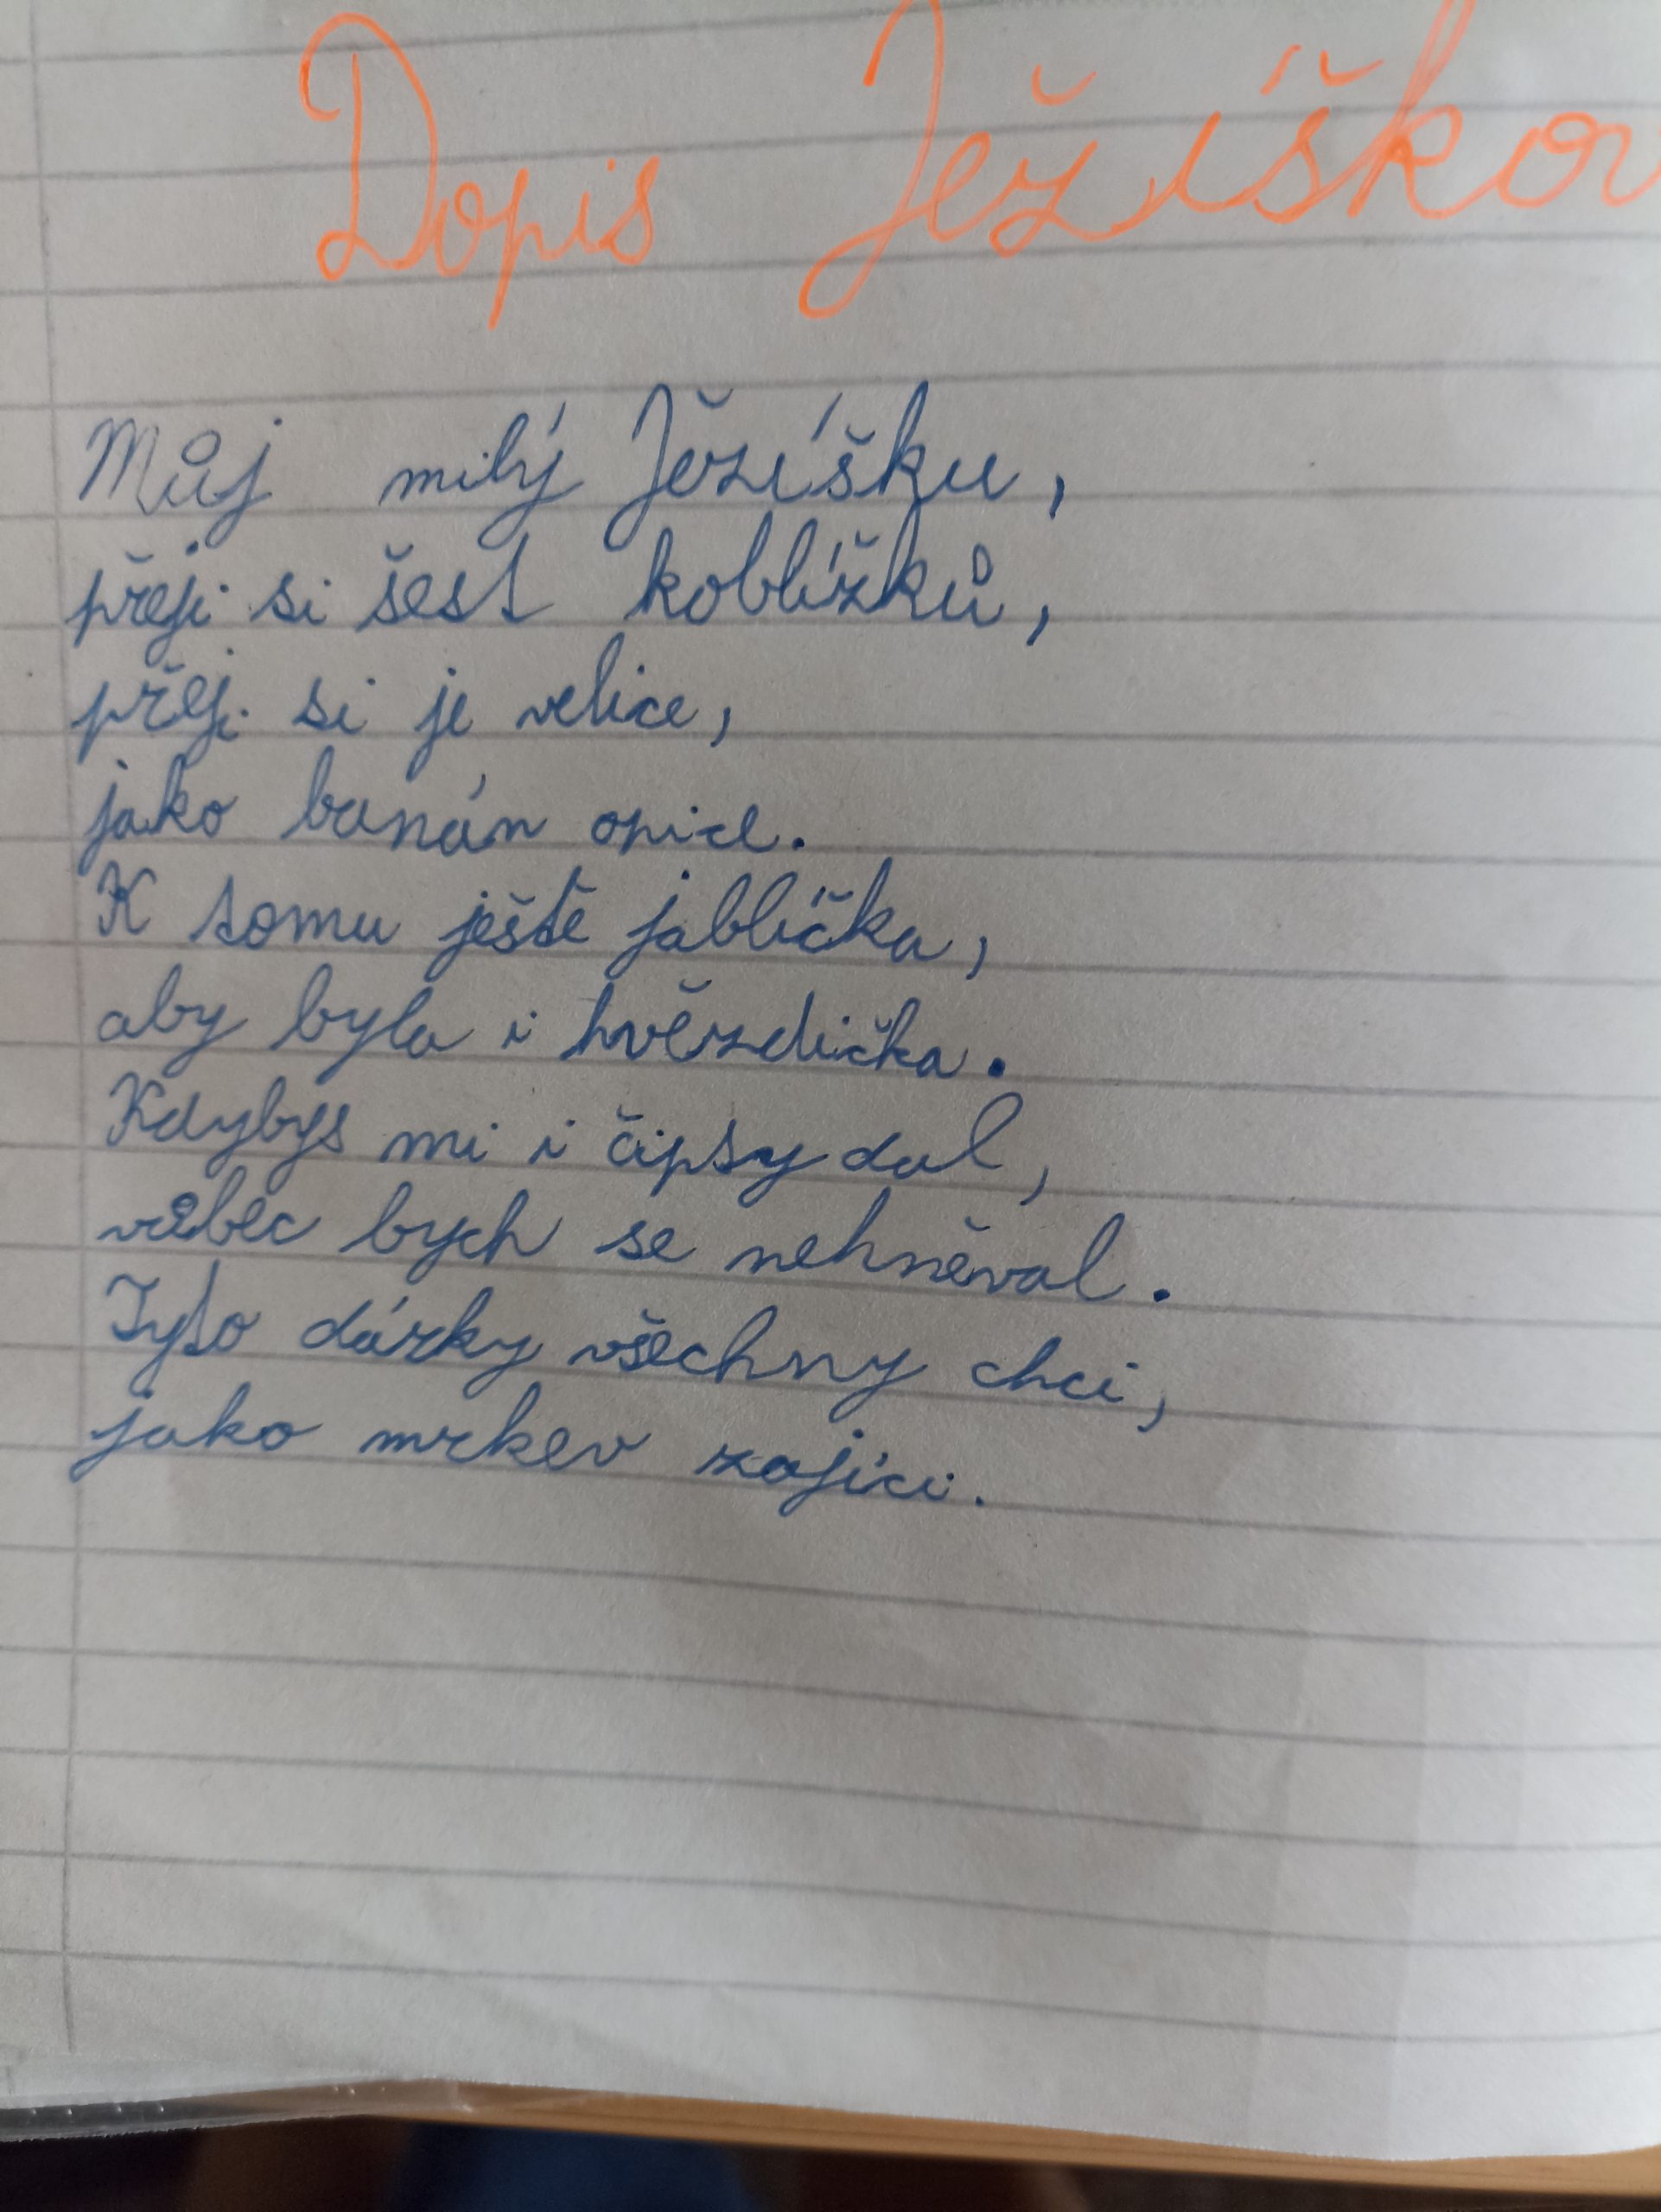 Dopis Ježíškov
Můj milý Ježíšku,
přeji si šest koblížků,
přeji si je velice,
jako banán opice.
K tomu ještě jablíčka,
aby byla i hvězdička.
Kdybys mi i čipsy dal,
vůbec bych se nehněval.
Tyto dárky všechny chci,
jako mrkev zajíci.